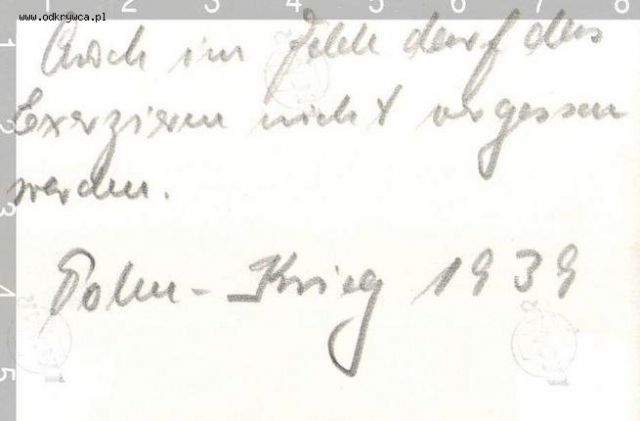 www.odkrywca.pl
1 2 3 4 5 6 7 8
Auch im Felde darf das
Exerzieren nicht vergessen
werden.
Polen - Krieg 1939
1
2
3
4
5